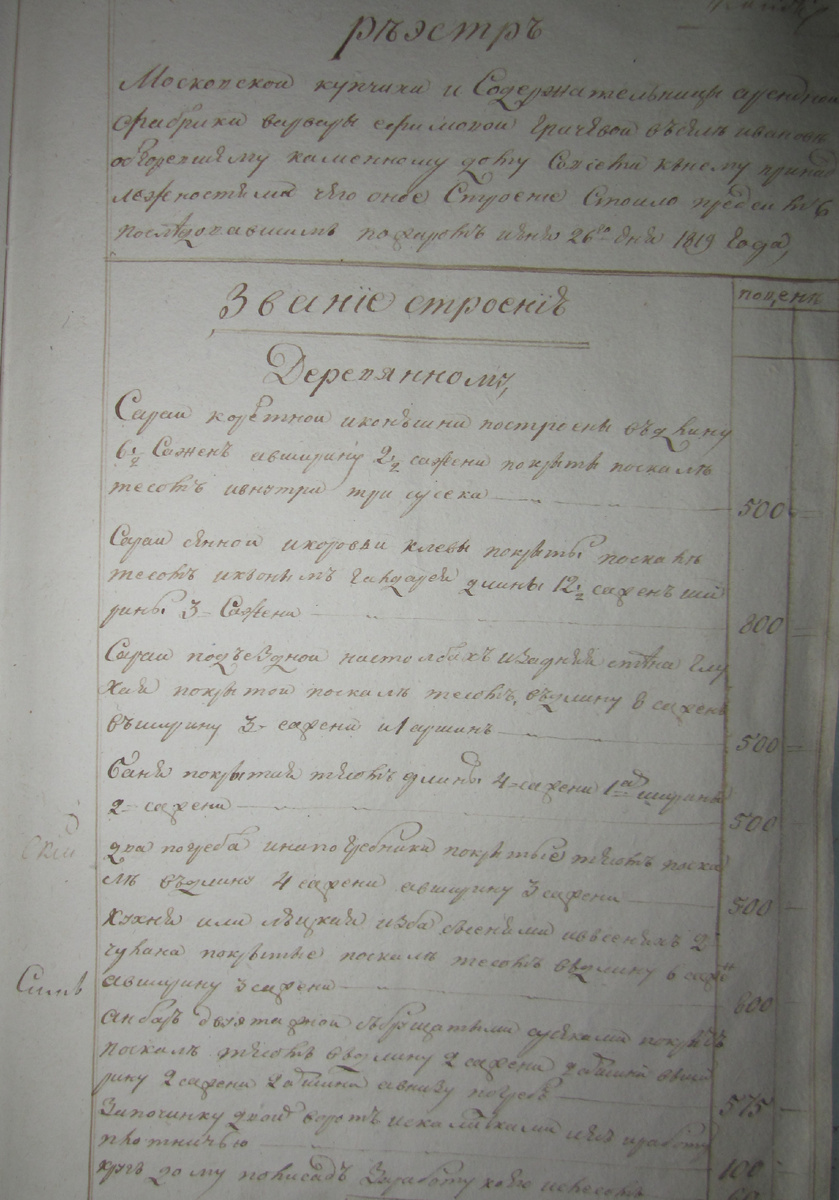 рѣэстръ
Московской купчихи и Содержательницы арендной
Фабрики варвары ефимовой Грачевой въселѣ ивановѣ
обгоревшему каменному дому Совсеми кнему принад
лежностями чего оное Строение Стоило пред
последовавшимъ пожаромъ 26го дня 1819 Года,
Званіе строенія
поценъ
Деревянному,
Сараи коретной иконюшни построены въдлину
6 1/2 Саженъ авширину 2 1/2 сажени покрыты поскалѣ
тесомъ ивнутри три сусека 500
Сараи сенной икоровьи хлевы покрыты поскалѣ
тесомъ длины 12 1/2 саженъ ши
рины 3 Сажени 800
Сараи подъездной настолбахъ изадняя стена глу
хая покрытой поскалѣ тесомъ, въдлину 8 саженъ
въширину 3 сажени и1 аршинъ 500
Баня покрытая тесомъ длины 4 сажени 1 ар ширины
2 сажени 500
два погреба инапогребники покрытые тесомъ поска
лѣ въдлину 4 сажени авширину 3 сажени 500
Кухня или людская изба сосенями ивсеняхъ 2
чулана покрытые поскалѣ тесомъ вдлину 6 саже
авширину 3 сажени 600
анбаръ сусеками покрытъ
поскалѣ тесомъ вдлину 2 сажени 2 аршина вши
рину 2 сажени 2 аршина авнизу погребъ 575
Започинку двои воротъ искалитками изработу
плотничью 100
кругъ дому полисадъ Заработу